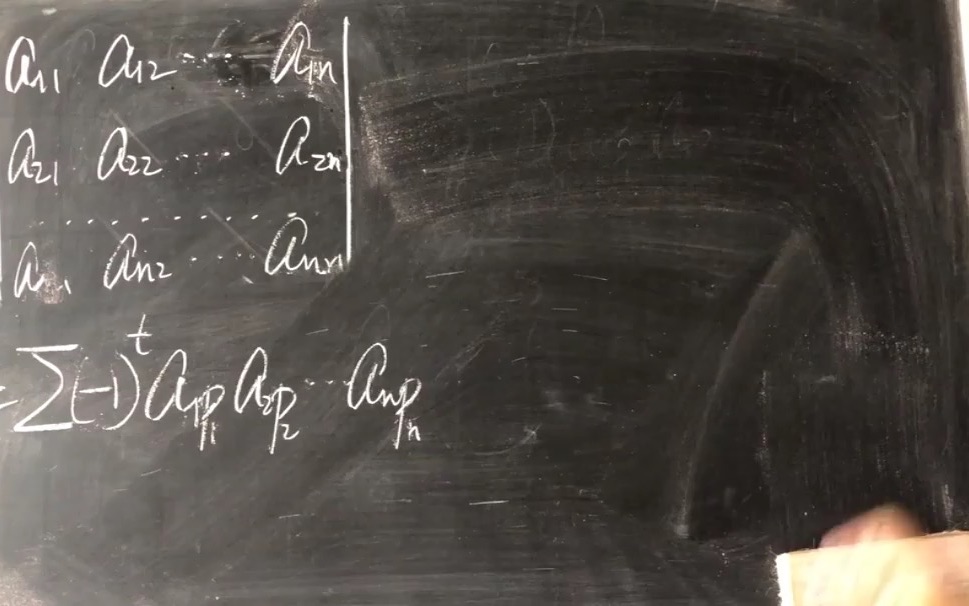 a₁₁ a₁₂ ····· a₁ₙ
a₂₁ a₂₂ ····· a₂ₙ
··············
aₙ₁ aₙ₂ ····· aₙₙ
= ∑(-1)ᵗ a₁ₚ₁ a₂ₚ₂ ··· aₙₚₙ